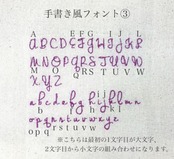 手書き風フォント③
A EFG IJ L
ABCDEFGHIJKL
MNOPQRSTUVW
M O QRS TUVW
XYZ
abcdefghijklmn
opqrstuvwxyz
op qrs t u v w x
※こちらは最初の1文字目が大文字、
2文字目から小文字の組み合わせになります。